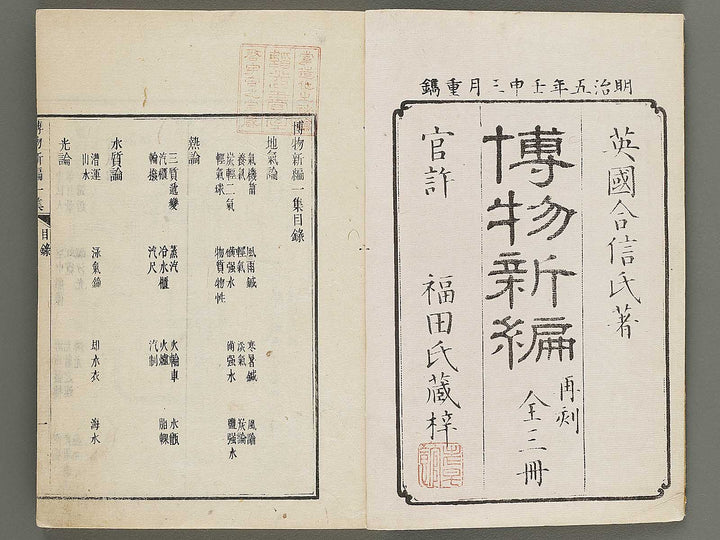 明治五年壬申三月重鐫
英國合信氏著
博物新編
再刻
全三冊
官許
福田氏蔵梓
博物新編一集目錄
地氣論
氣機筩 風雨鍼 寒暑鍼 風論
養氣 輕氣 淡氣 炭論
炭輕二氣 磺强水 硝强水 鹽强水
輕氣球 物質物性
熱論
三質遞變 蒸汽 火輪車 水甑
汽櫃 冷水櫃 火爐 脂輠
輪撥 汽尺 汽制
水質論
潛運 淥氣鐘 却水衣 海水
山水
光論
博物新編一集
目錄
一